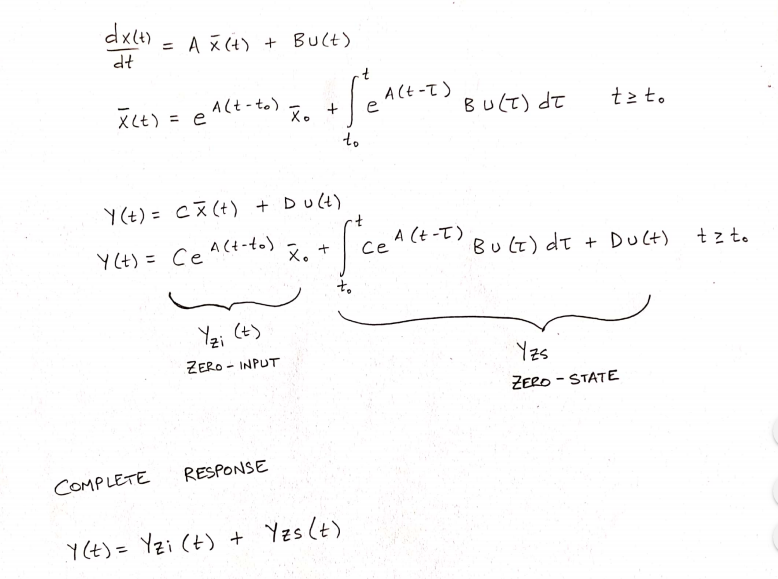 dx(t)/dt = A x̄(t) + BU(t)
x̄(t) = e^A(t-t₀) x̄₀ + ∫_t₀^t e^A(t-τ) BU(τ) dτ   t ≥ t₀
Y(t) = Cx̄(t) + DU(t)
Y(t) = Ce^A(t-t₀) x̄₀ + ∫_t₀^t Ce^A(t-τ) BU(τ) dτ + DU(t)   t ≥ t₀
Yzi (t)   Yzs
ZERO-INPUT   ZERO-STATE
COMPLETE RESPONSE
Y(t) = Yzi(t) + Yzs(t)